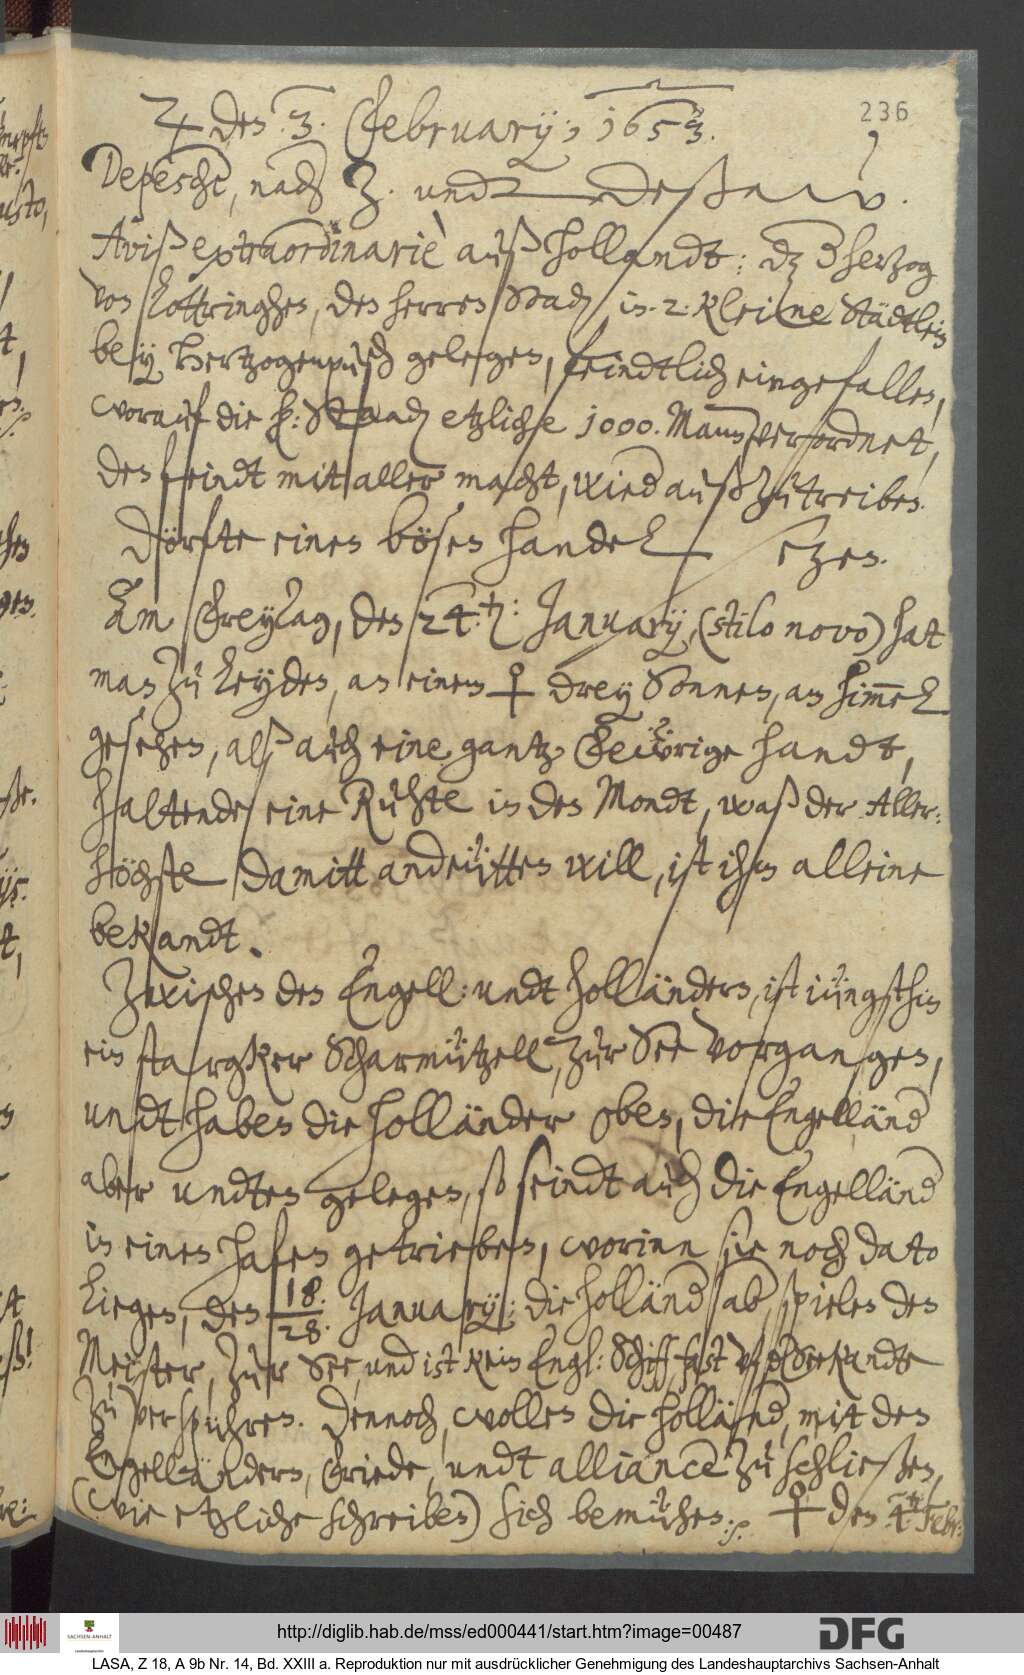 236
♃ den .3. February; 1653.
Depesche, nach Z. undt Deßaw.
Aviß extraordinarie auß Hollandt: dz der Hertzog
von Lottringhen, den Herren Staden in .2. kleine Städtlein
bey Hertzogenpusch gelegen, feindtlich eingefallen,
worauf die H: Staaden etzliche 1000. Mann verordnet,
den feindt mit aller macht, wied außzutreiben.
Dörfte einen bösen handel setzen.
Am Freytag, den 24.ten: January, (stilo novo) hat
man zu Leyden, an einem ♀ drey Sonnen, am himmel
gesehen, alß auch eine gantz Feuwrige handt,
haltende eine Ruhte in den Mondt, waß der Aller-
höchste damitt andeütten will, ist ihm alleine
bekandt.
Zwischen den Engell: undt Holländern, ist iüngsthin
ein stargker Scharmützell, zur See vorgangen,
undt haben die Holländer oben, die Engelländ
aber undten gelegen, so seindt auch die Engelländ
in einen hafen getrieben, worinn sie noch dato
liegen, den 18./28. January: die Holländ ab, spielen den
Meister, zur See, und ist kein Engl: Schiff fast uf der Seekandte
zu verspühren. Dennoch, wollen die Holländ, mit den
Engelländern, Friede, undt alliance zu schließen,
(wie etzliche schreiben) sich bemühen. ♀ den 4ten Febr:
http://diglib.hab.de/mss/ed000441/start.htm?image=00487
SACHSEN-ANHALT
Landeshauptarchiv
DFG
LASA, Z 18, A 9b Nr. 14, Bd. XXIII a. Reproduktion nur mit ausdrücklicher Genehmigung des Landeshauptarchivs Sachsen-Anhalt